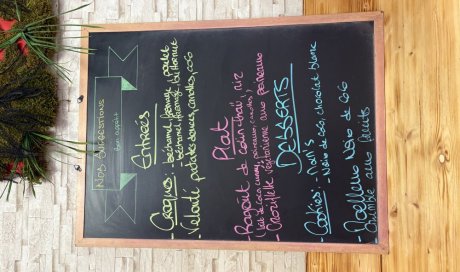 NOS SUGGESTIONS
bon appétit
Entrées
- Croquies: béchamel fromage poulet
béchamel fromage
- Velouté patates douces, carottes, coco
Plat
- Ragoût de colin thaï, riz
(lait de coco curry, poivrons, carottes)
- Croziflette végétarienne aux poireaux
DESSERTS
- Cookies: - M&M's
- Noix de coco, chocolat blanc
- Moelleux Noix de coco
- Crumble aux fruits